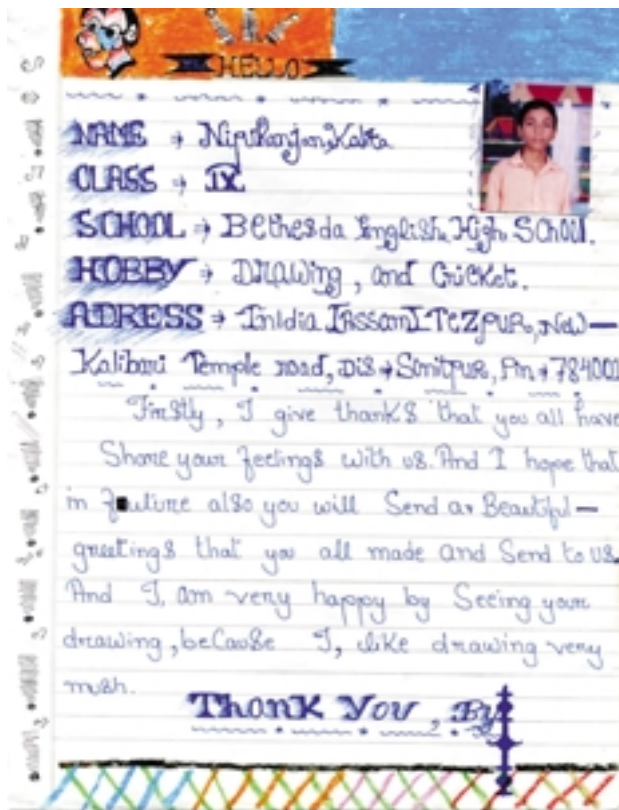 HELLO
NAME → Nipikanjan, Kalita
CLASS → IX
SCHOOL → Bethesda English High School.
HOBBY → Drawing, and Cricket.
ADRESS → Inidia IAssamI Tezpur, New —
Kalibari Temple road, Dis → Sonitpur, Pin → 784001
Firstly, I give thanks that you all have
Share your feelings with us. And I hope that
in future also you will Send as Beautiful —
greetings that you all made and Send to us.
And I, am very happy by Seeing your
drawing, because I, like drawing very
mush.
Thank You, By